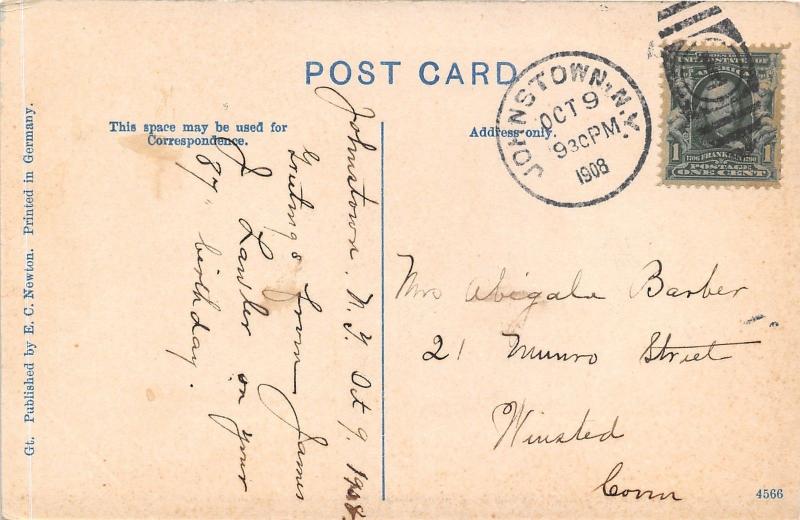 POST CARD
This space may be used for
Correspondence.
Address only.
Johnstown, N.Y. Oct 9, 1908.
Greetings from James
J Lawler on your
87" birthday.
JOHNSTOWN, N.Y.
OCT 9
930PM
1908
UNITED STATES OF
AMERICA
1 1706 FRANKLIN 1790 1
POSTAGE
ONE CENT
Mrs Abigale Barber
21 Munro Street
Winsted
Conn
4566
Gt. Published by E. C. Newton. Printed in Germany.